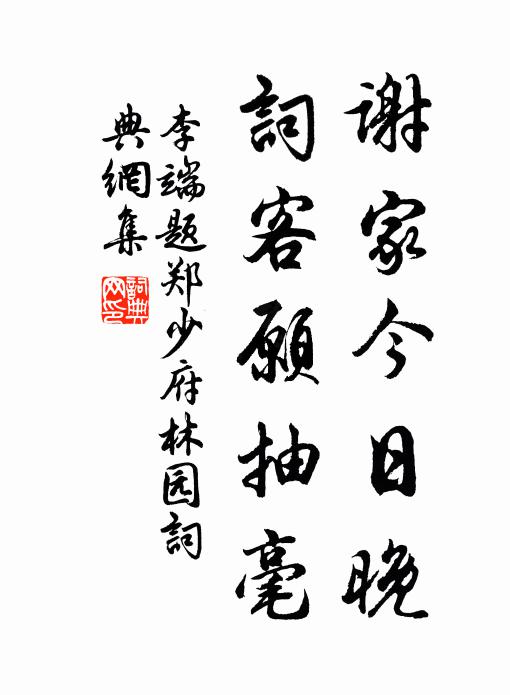 謝家今日晚
詞客願抽毫
李端题郑少府林园詞
典網集
詞典
网印